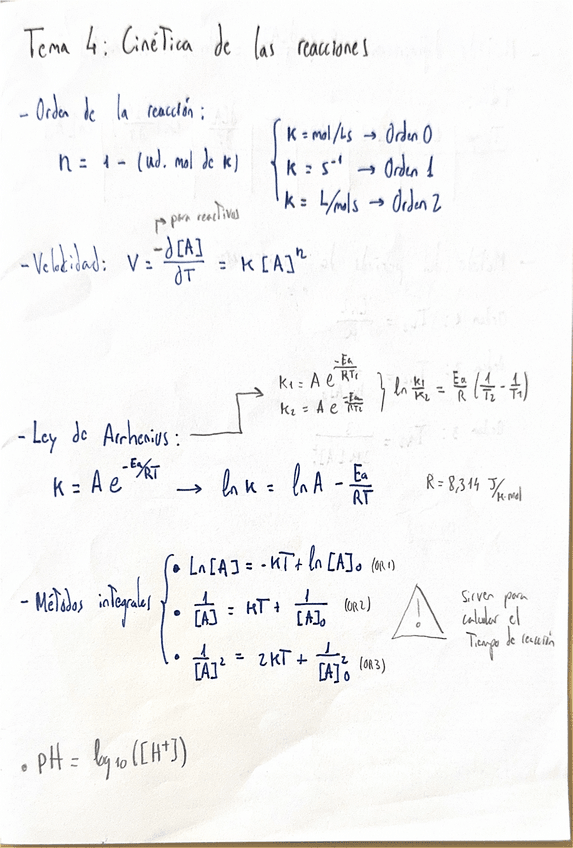 Tema 4: Cinética de las reacciones
- Orden de la reacción:
n = 1 - (ud. mol de K)
K = mol/Ls → Orden 0
K = s⁻¹ → Orden 1
K = L/mols → Orden 2
→ para reactivos
- Velocidad: V = -∂[A]/∂T = K [A]ⁿ
K₁ = A e^(-Ea/RT₁)
K₂ = A e^(-Ea/RT₂)
} ln K₁/K₂ = Ea/R (1/T₂ - 1/T₁)
- Ley de Arrhenius:
K = A e^(-Ea/RT) → ln K = ln A - Ea/RT
R = 8,314 J/K·mol
- Métodos integrales
• Ln[A] = -KT + ln[A]₀ (OR1)
• 1/[A] = KT + 1/[A]₀ (OR2)
• 1/[A]² = 2KT + 1/[A]₀² (OR3)
!
Sirven para
calcular el
Tiempo de reacción
• PH = log₁₀([H⁺])